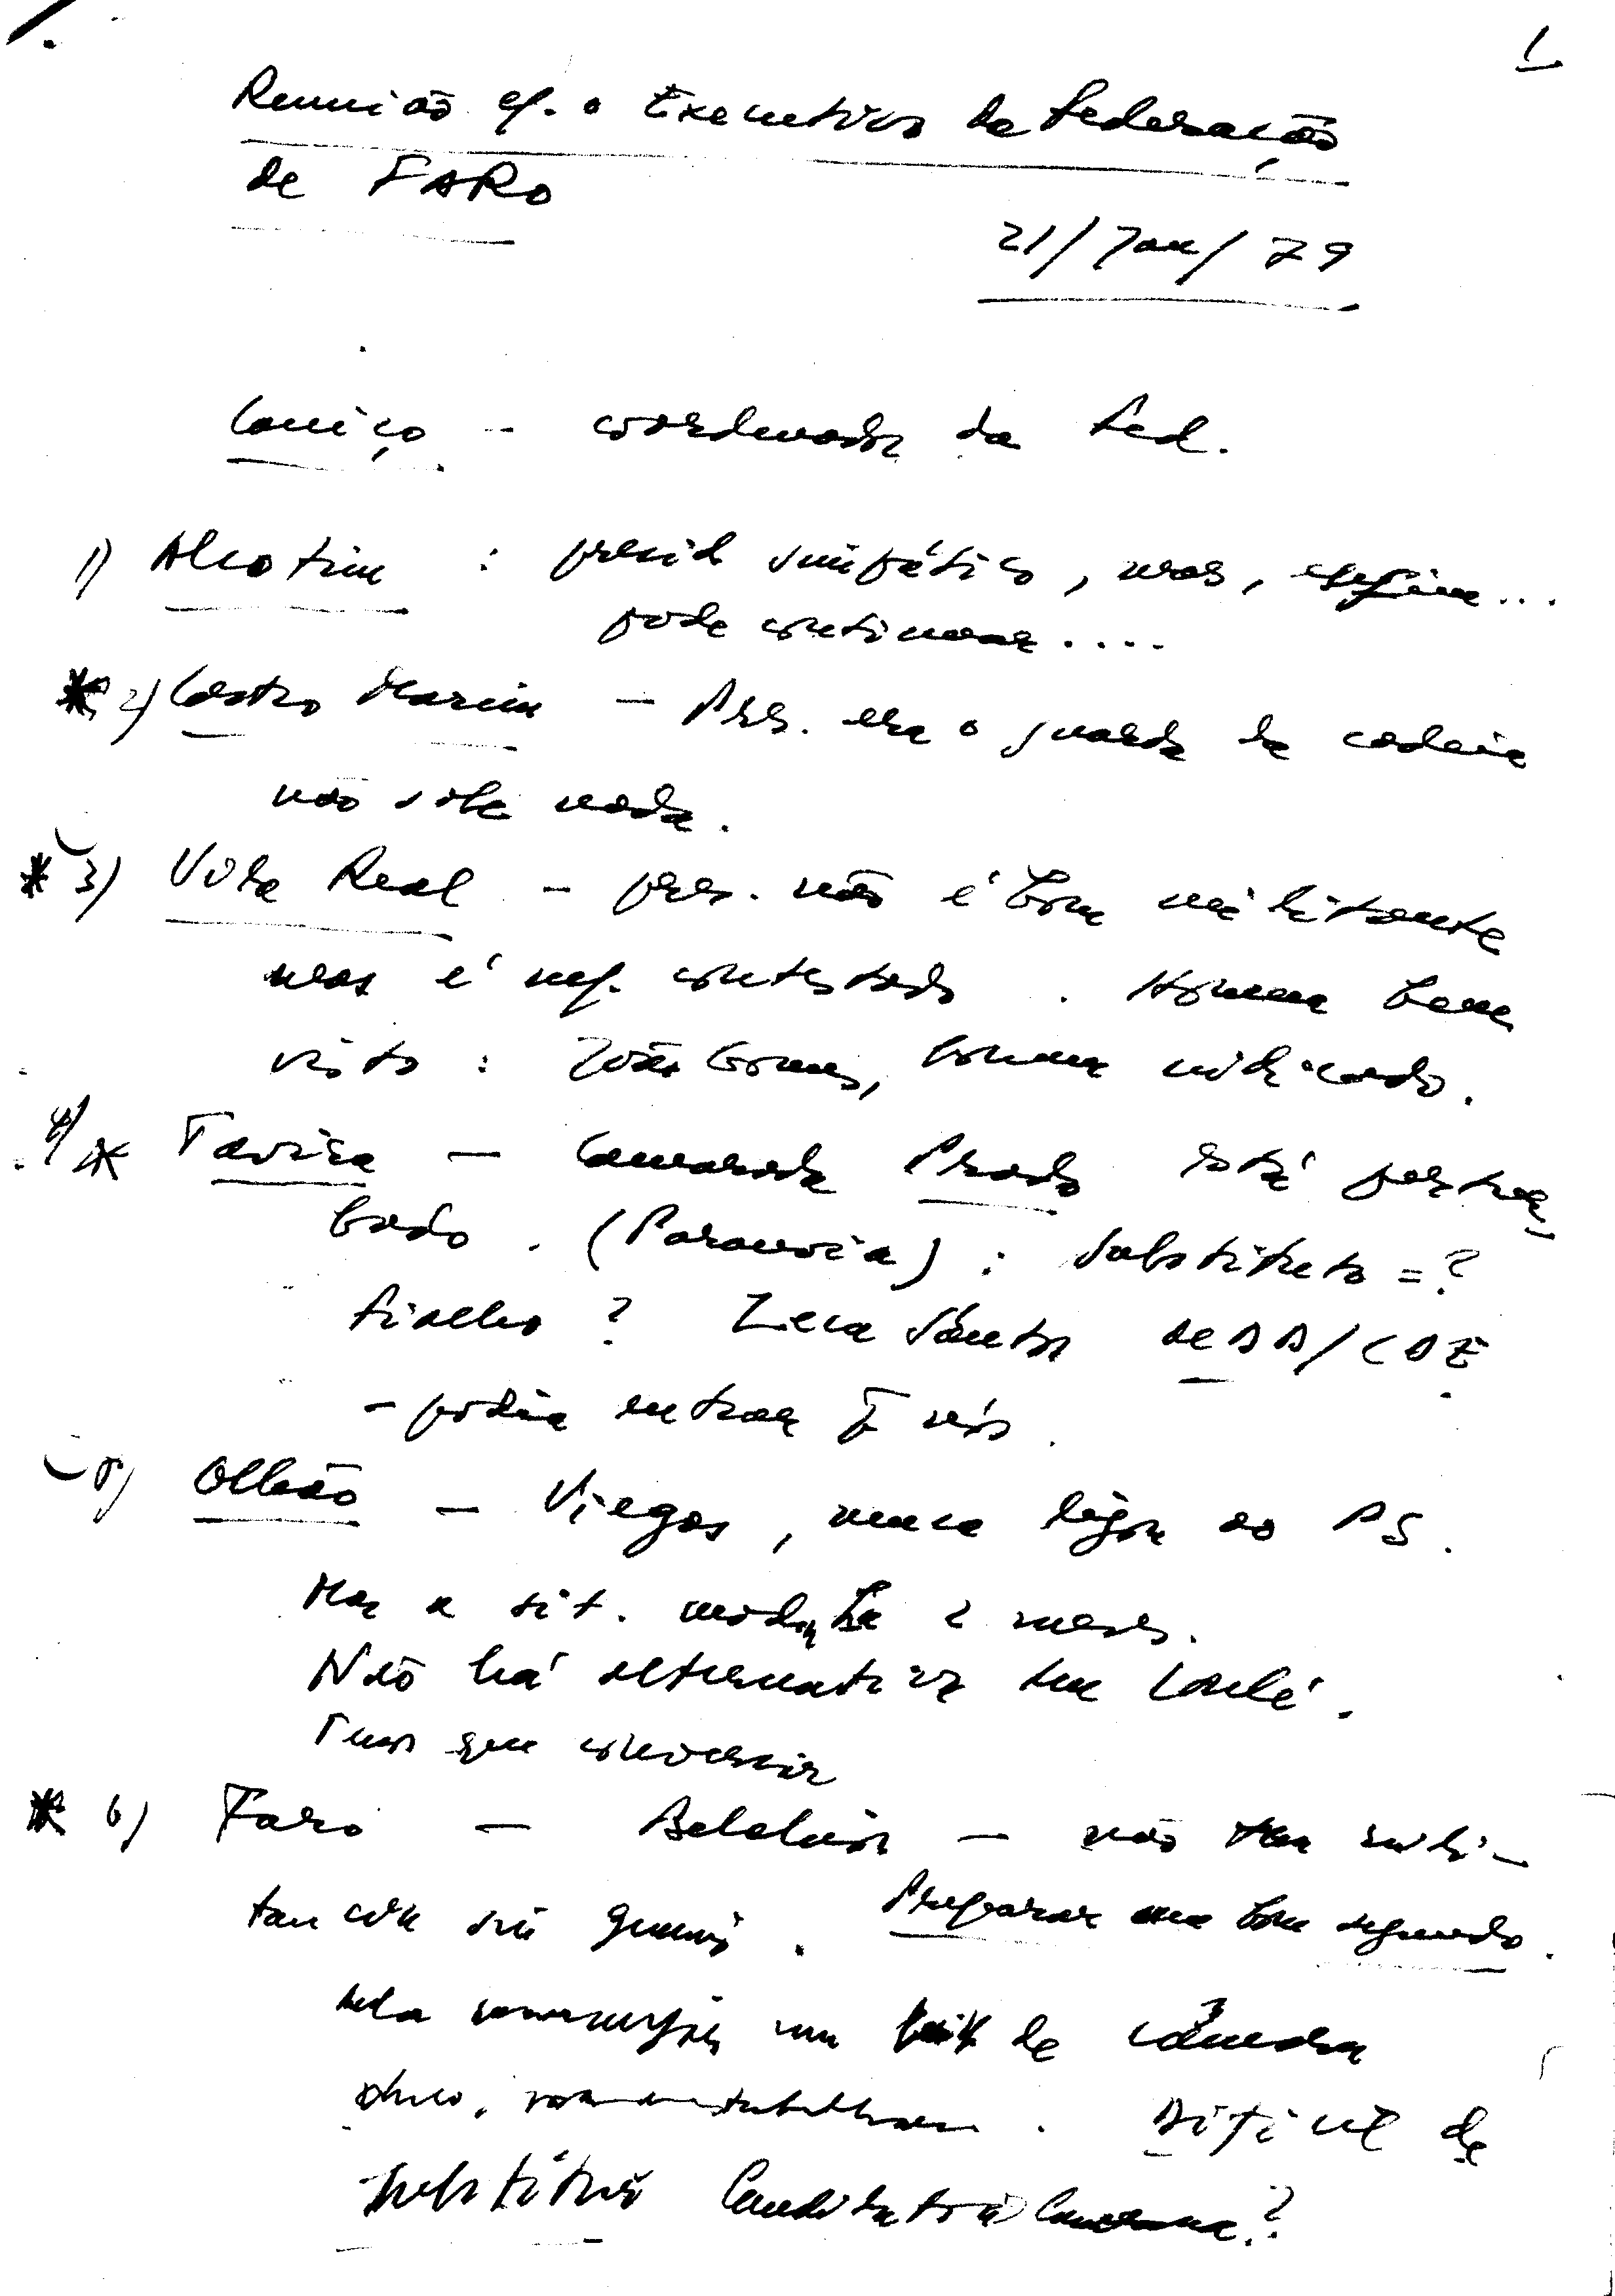 1
Reunião c/. o Executivo da Federação
de FARO
21/Jan/79
Caniço - coordenador da Fed.
1) Alcotim : presid simpático, mas, enfim...
pode continuar....
* 2) Castro Marim - Pres. era o guarda da cadeia
não vale nada.
* 3) Vila Real - pres. não é bom militante
mas é contestado. Homem bem
visto : João Gomes, homem indicado.
4) * Tavira - Camarada Prado está pertur-
bado. (Paranoia) : substituto = ?
Fialho ? Zeca Santos / CDE
- podia entrar p/ nós.
5) Olhão - Viegas, nunca ligou ao PS.
Mas a sit. mudou há 2 meses.
Não há alternativa em Loulé.
Temos que conversar
* 6) Faro - Belchior - não tem mili-
tância. Preparar um bom segundo.
de Câmara
Difícil de
substituir Candidato à Camara?